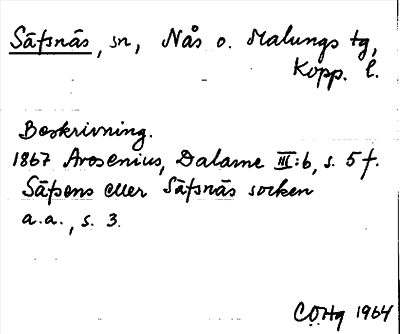 Säfsnäs, sn, Nås o. Malungs tg,
Kopp. l.
Beskrivning.
1867 Arosenius, Dalarne III:b, s. 5 f.
Säfsens eller Säfsnäs socken
a.a., s. 3.
COHg 1964